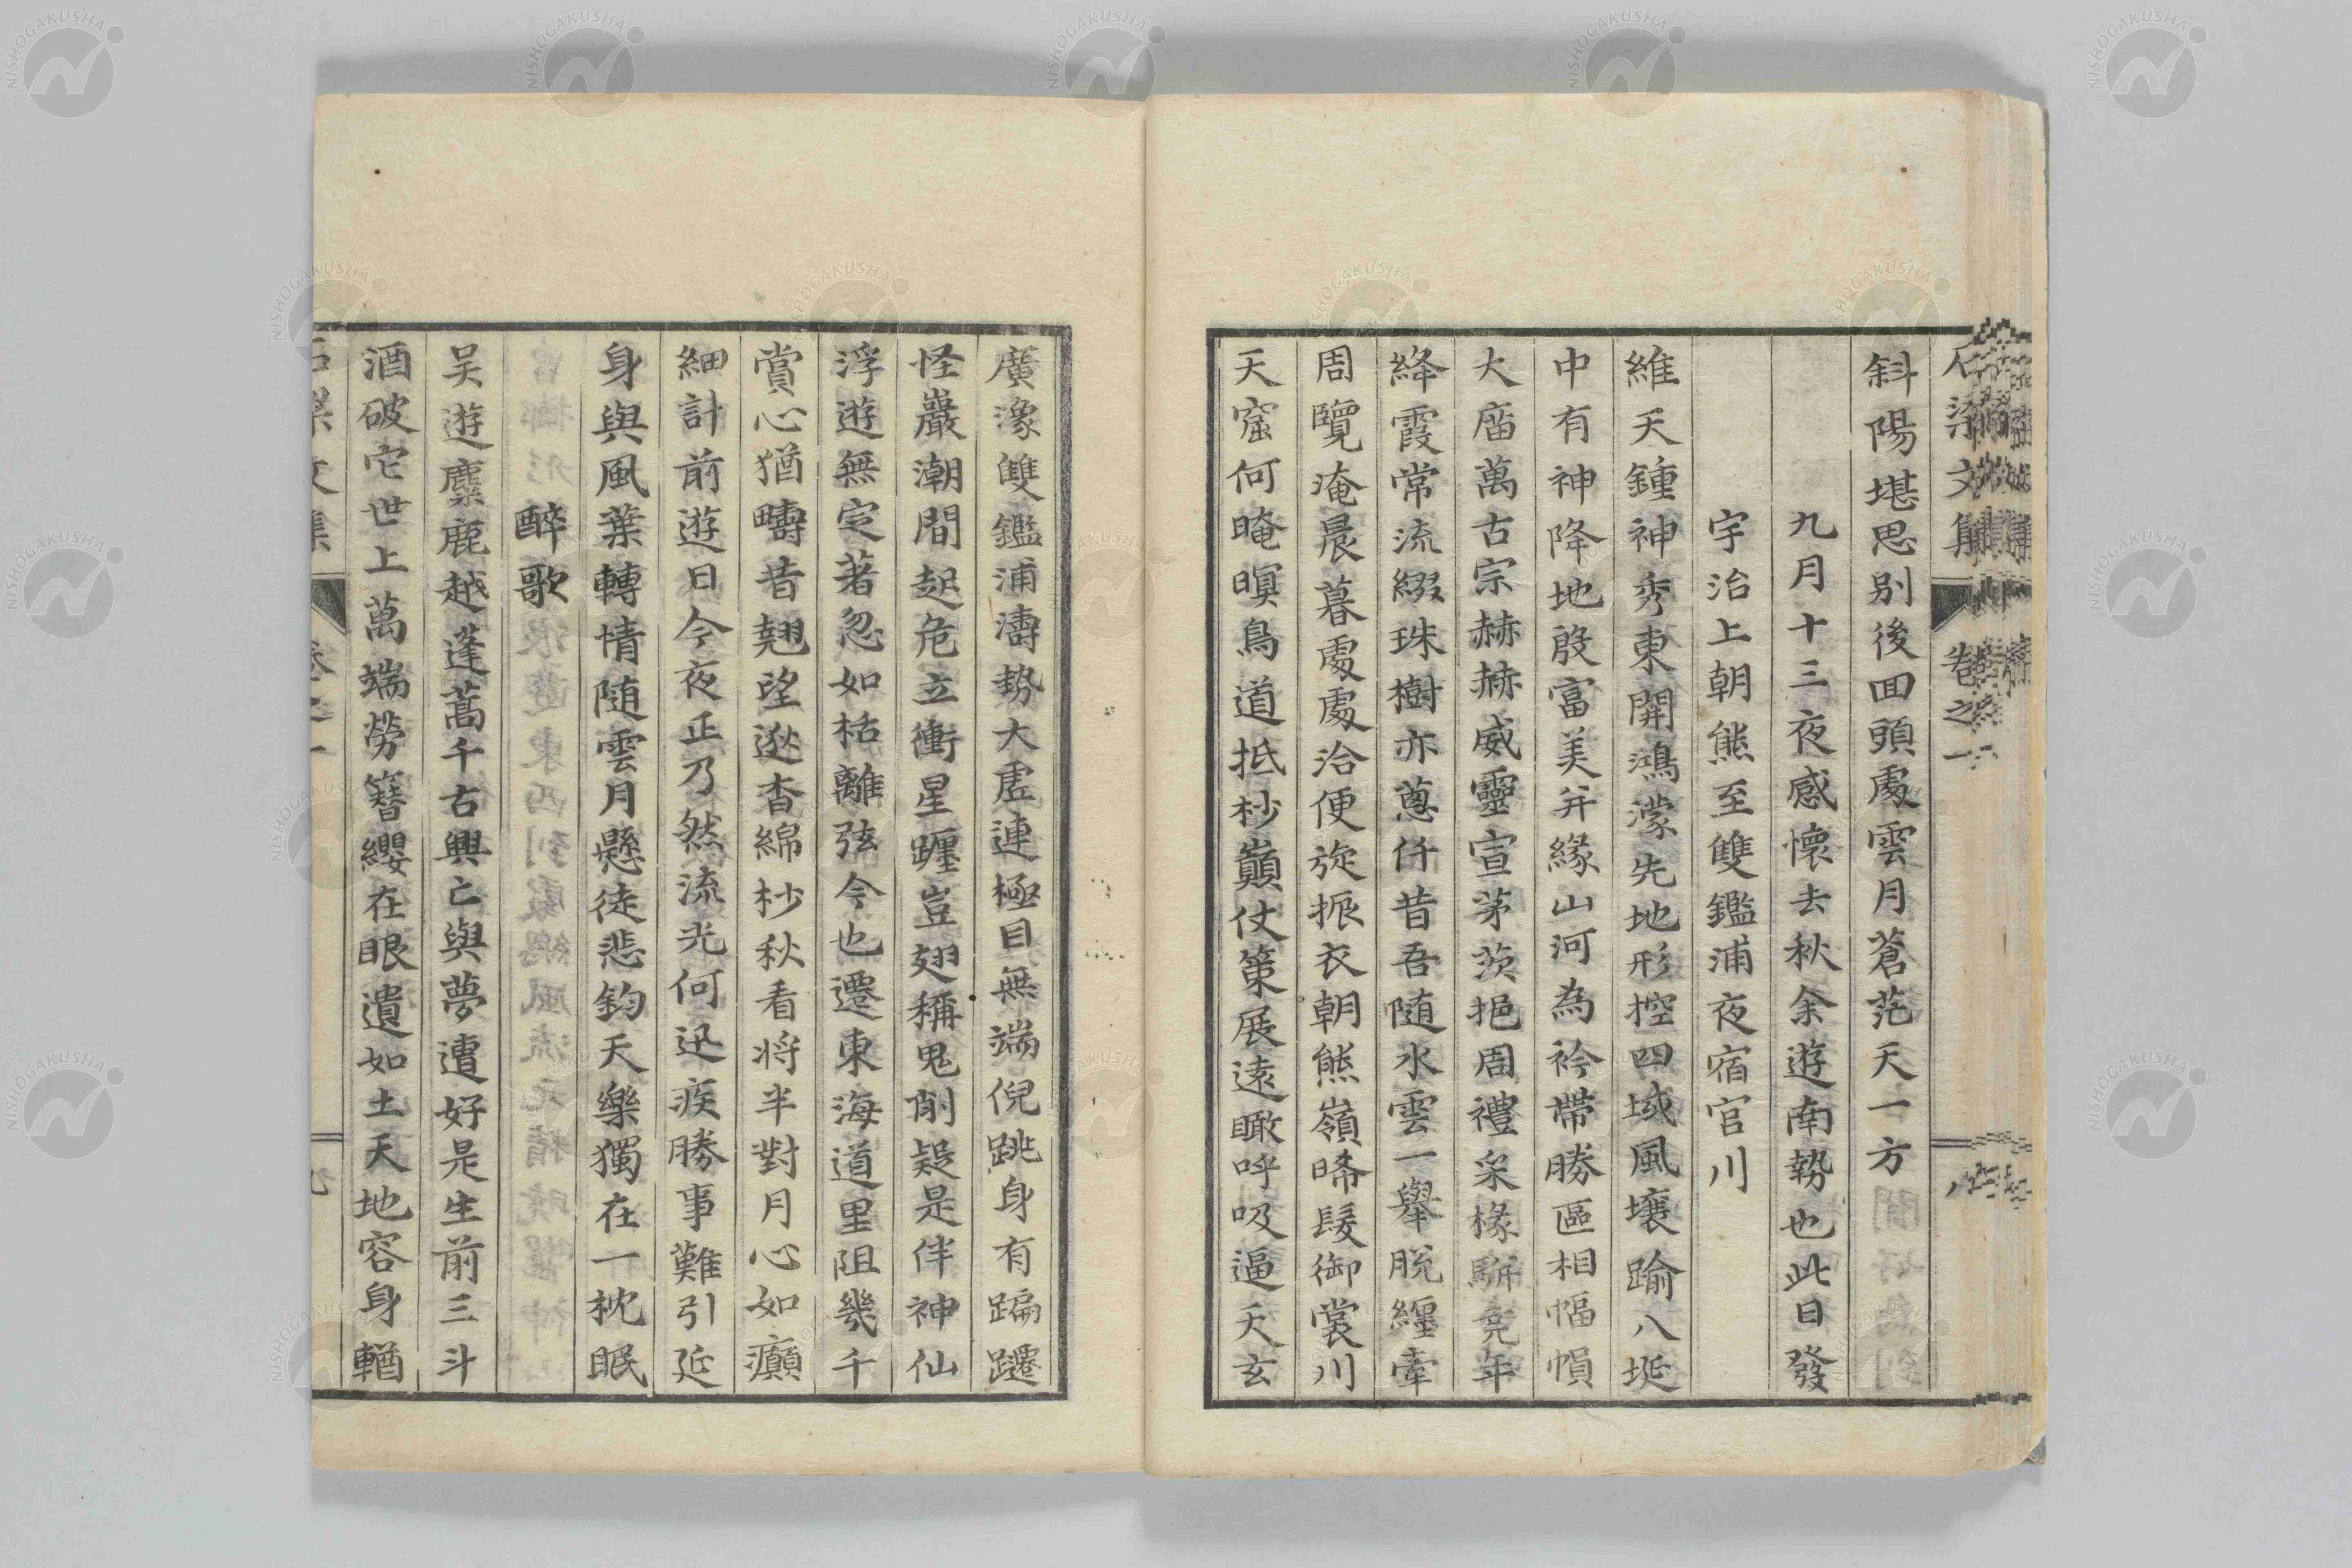 石梁文集 卷之一 八
斜陽堪思别後囬頭處雲月蒼茫天一方
九月十三夜感懷去秋余遊南勢也此日發
宇治上朝熊至雙鑑浦夜宿宮川
維天鍾神秀東開鴻濛先地形控四域風壤踰八埏
中有神降地殷富美并緣山河為衿帶勝區相幅幀
大庿萬古宗赫赫威靈宣茅茨挹周禮采椽駢堯年
絳霞常流綴珠樹亦蔥仟昔吾随水雲一舉脫纏牽
周覽淹晨暮處處洽便旋振衣朝熊嶺晞髮御裳川
天窟何晻暝鳥道抵杪巔仗策展遠瞰呼吸逼天玄
廣濠雙鑑浦濤勢大虛連極目無端倪跳身有蹁躚
怪巖潮間起危立衝星躔豈翅稱鬼削疑是伴神仙
浮遊無定著忽如栝離弦今也遷東海道里阻幾千
賞心猶疇昔翹望逖杳綿杪秋看将半對月心如癲
細計前遊日今夜正乃然流光何迅疾勝事難引延
身與風葉轉情随雲月懸徒悲鈞天樂獨在一枕眠
醉歌
吴遊麋鹿越蓬蒿千古興亡與夢遭好是生前三斗
酒破它世上萬端勞簪纓在眼遺如土天地容身輶
石梁文集 卷之一 九